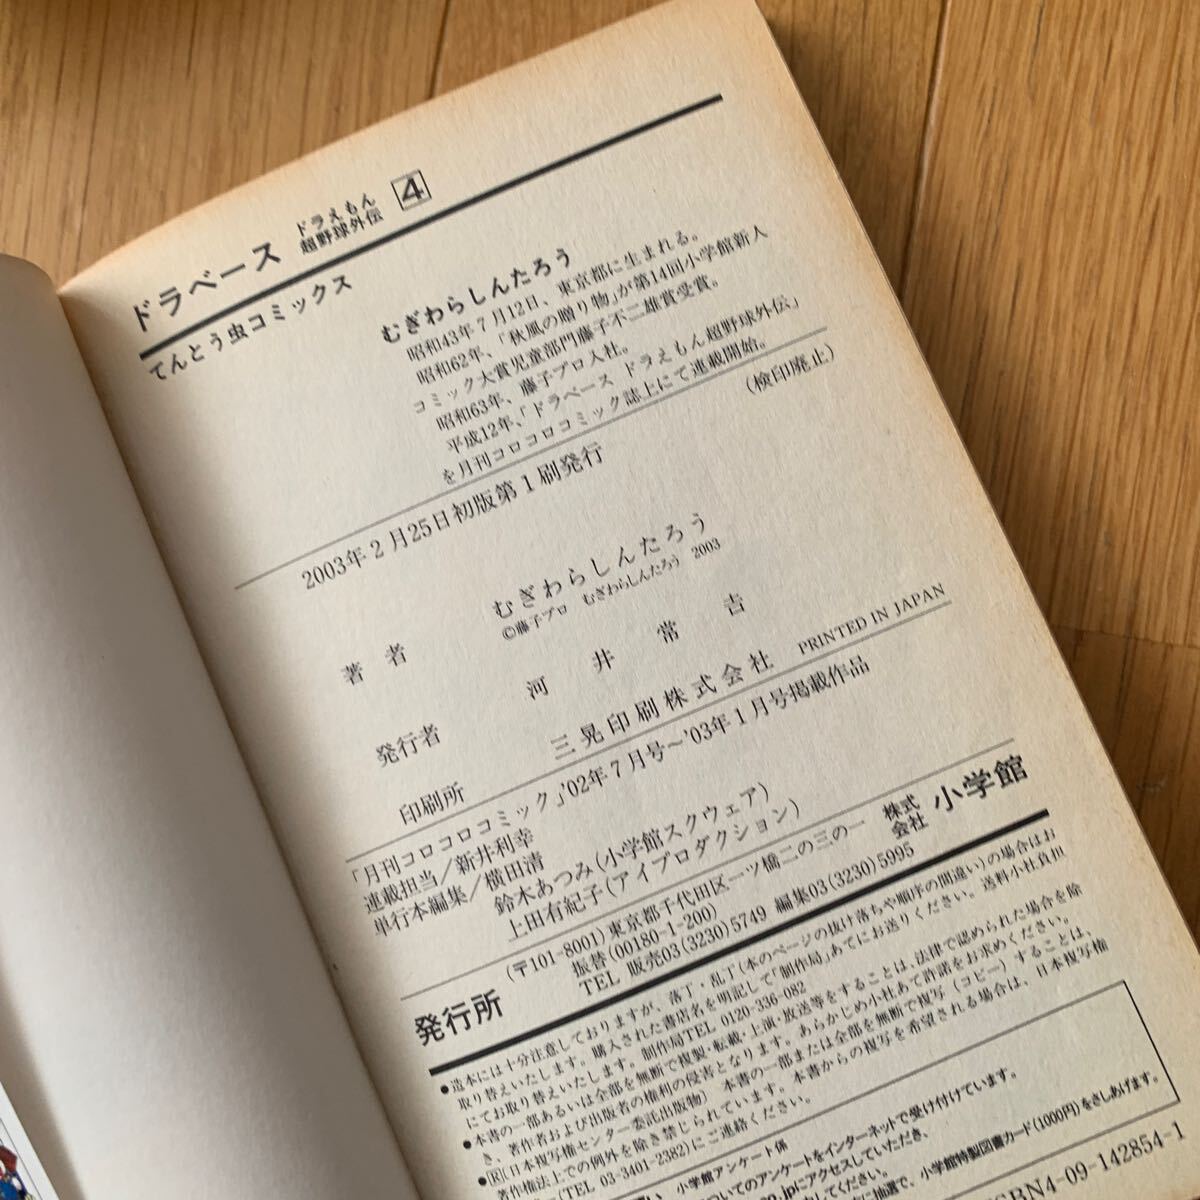 ドラベース ドラえもん超野球外伝 4
てんとう虫コミックス
むぎわらしんたろう
昭和43年7月12日、東京都に生まれる。
昭和62年、「秋風の贈り物」が第14回小学館新人
コミック大賞児童部門藤子不二雄賞受賞。
昭和63年、藤子プロ入社。
平成12年、「ドラベース ドラえもん超野球外伝」
を月刊コロコロコミック誌上にて連載開始。
(検印廃止)
2003年2月25日初版第1刷発行
著者 むぎわらしんたろう
©藤子プロ むぎわらしんたろう 2003
発行者 河井常吉
印刷所 三晃印刷株式会社 PRINTED IN JAPAN
「月刊コロコロコミック」'02年7月号~'03年1月号掲載作品
連載担当/新井利幸
単行本編集/横田清
鈴木あつみ(小学館スクウェア)
上田有紀子(アイプロダクション)
発行所 (〒101-8001)東京都千代田区一ツ橋二の三の一 株式会社 小学館
振替(00180-1-200)
TEL 販売03(3230)5749 編集03(3230)5995
●造本には十分注意しておりますが、落丁・乱丁(本のページの抜け落ちや順序の間違い)の場合はお
取り替えいたします。購入された書店名を明記して「制作局」あてにお送りください。送料小社負担
にてお取り替えいたします。制作局TEL 0120-336-082
●本書の一部あるいは全部を無断で複製・転載・上演・放送等をすることは、法律で認められた場合を除
き、著作者および出版者の権利の侵害となります。あらかじめ小社あて許諾をお求めください。
●R[日本複写権センター委託出版物] 本書の一部または全部を無断で複写(コピー)することは、
著作権法上での例外を除き禁じられています。本書からの複写を希望される場合は、日本複写権
(TEL 03-3401-2382)にご連絡ください。
小学館アンケート係
ついてのアンケートをインターネットで受け付けています。
.jpにアクセスしていただき、
に抽選で、小学館特製図書カード(1000円)をさしあげます。
してください。
ISBN4-09-142854-1